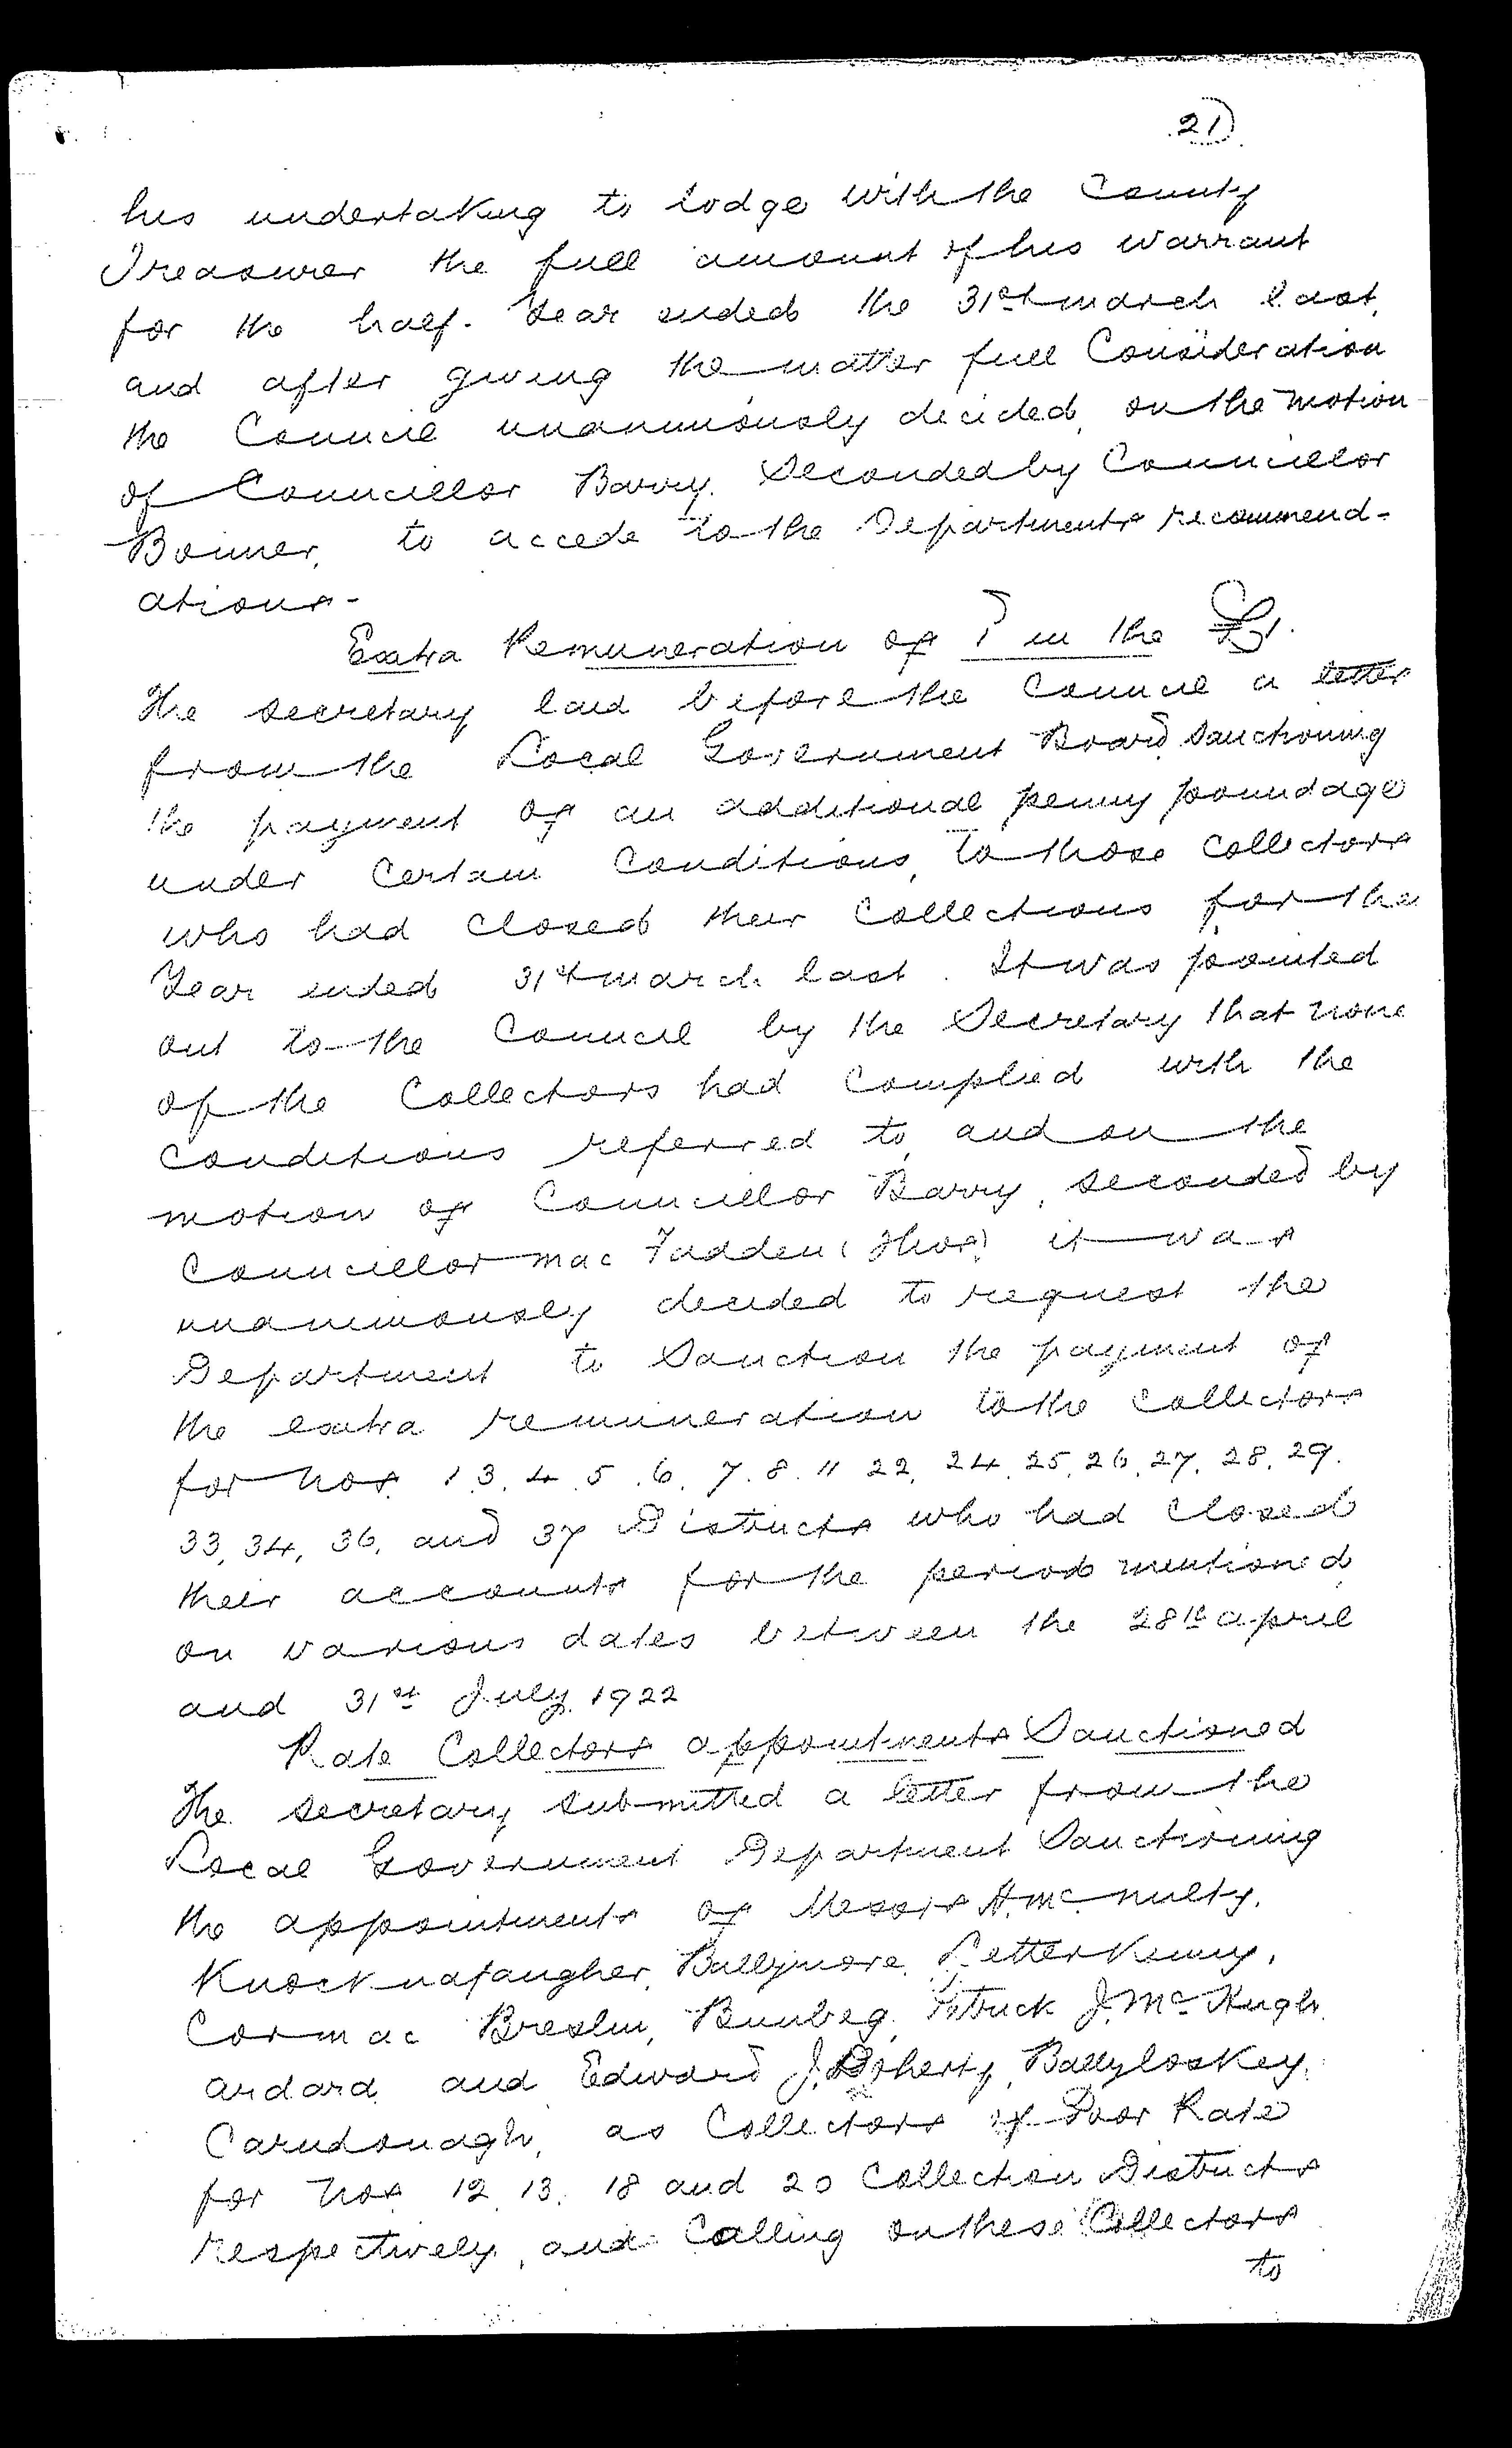 21
his undertaking to lodge with the County
Treasurer the full amount of his warrant
for the half-Year ended the 31st march last,
and after giving the matter full Consideration
the Council unanimously decided, on the motion
of Councillor Barry, Seconded by Councillor
Bonner, to accede to the Departments recommend-
ations -
Extra Remuneration of 1d in the £1.
The secretary laid before the Council a letter
from the Local Government Board Sanctioning
the payment of an additional penny poundage
under Certain Conditions, to those Collectors
who had Closed their Collections for the
Year ended 31st march last. It was pointed
out to the Council by the Secretary that none
of the Collectors had Complied with the
Conditions referred to, and on the
motion of Councillor Barry, seconded by
Councillor Mac Fadden (Thos) it was
unanimously decided to request the
Department to Sanction the payment of
the extra remuneration to the Collectors
for Nos. 1. 3. 4. 5. 6. 7. 8. 11 22, 24, 25, 26, 27, 28, 29.
33, 34, 36, and 37 Districts who had Closed
their accounts for the period mentioned
on various dates between the 28th april
and 31st July, 1922
Rate Collectors appointments Sanctioned
The secretary submitted a letter from the
Local Government Department Sanctioning
the appointments of Messrs H. McNulty,
Knocknafaugher, Ballymore, Letterkenny,
Cormac Breslin, Bunbeg, Patrick J. McHugh,
ardara and Edward J. Doherty, Ballyloskey,
Carndonagh, as Collectors of Poor Rate
for Nos. 12, 13, 18 and 20 Collection Districts
respectively, and Calling on these Collectors
to